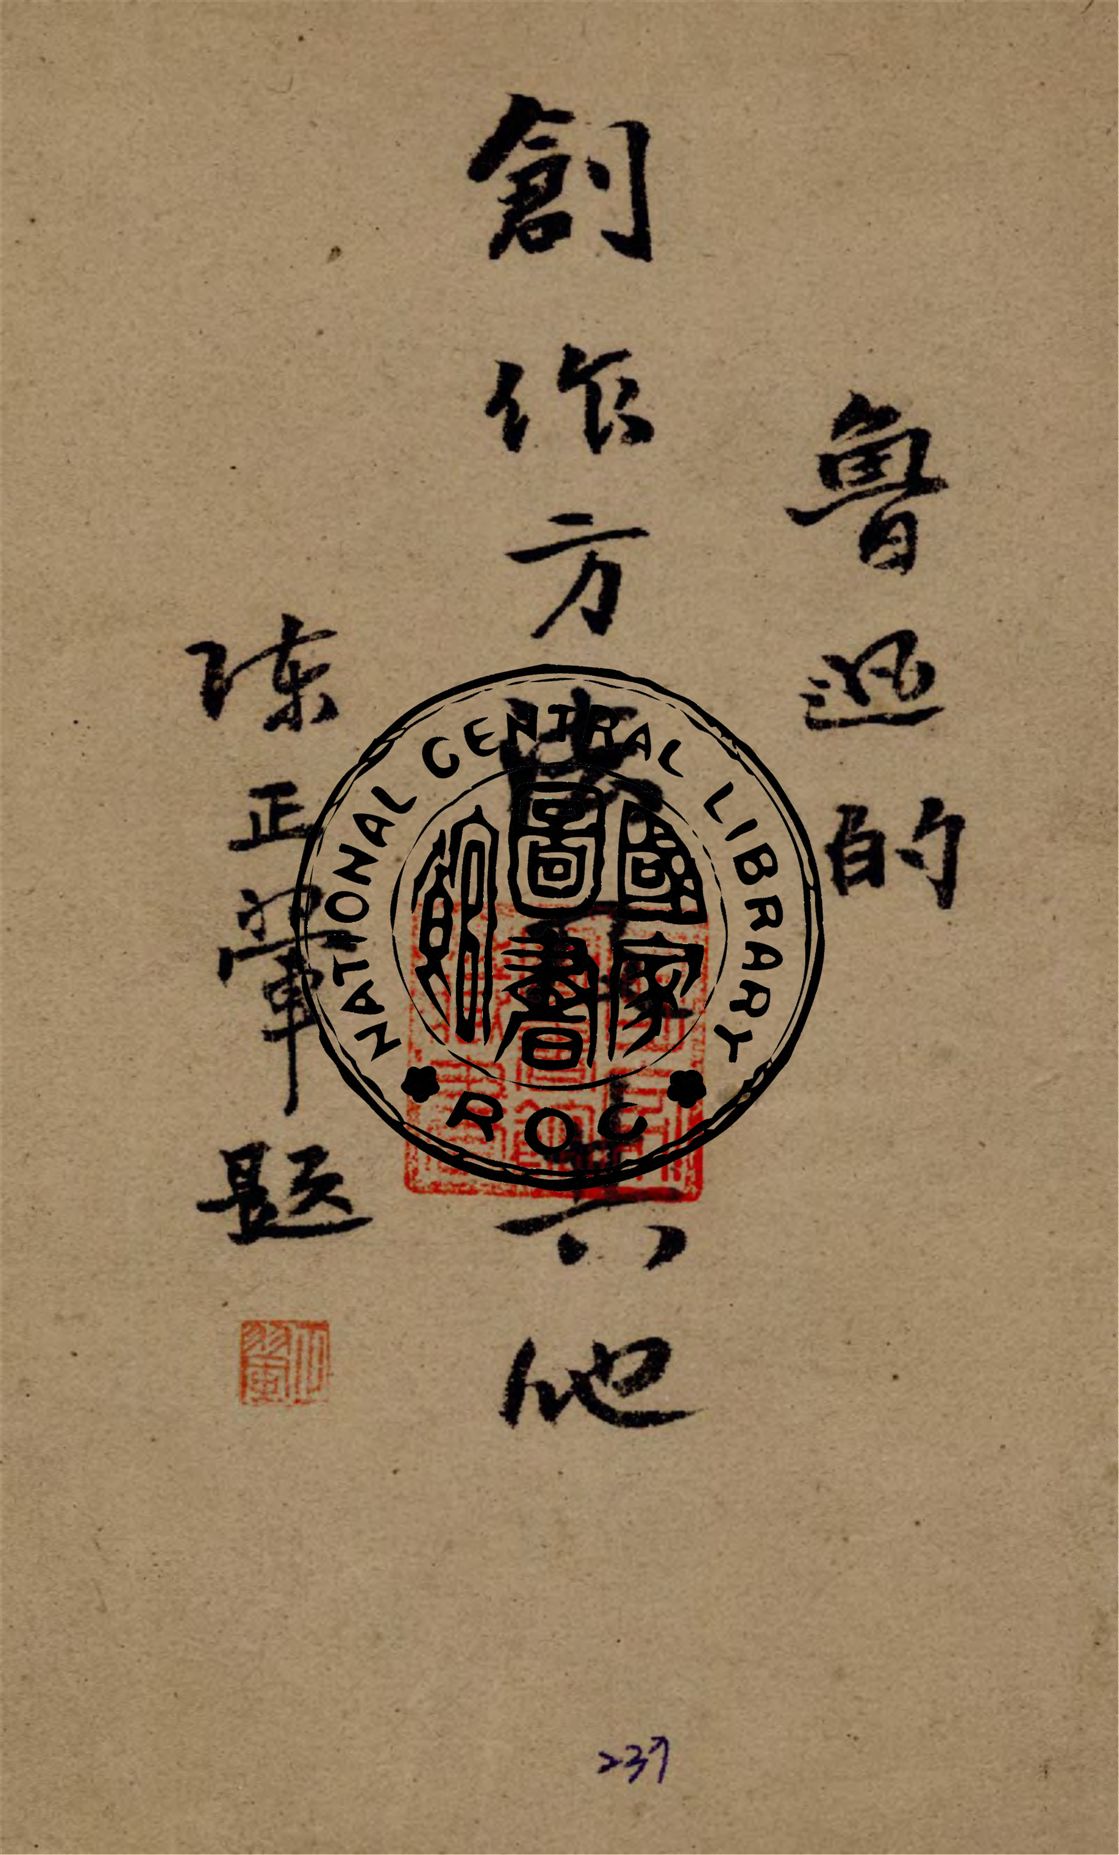 魯迅的
創作方法及其他
陳正
題
NATIONAL CENTRAL LIBRARY
國家圖書館
ROC
239